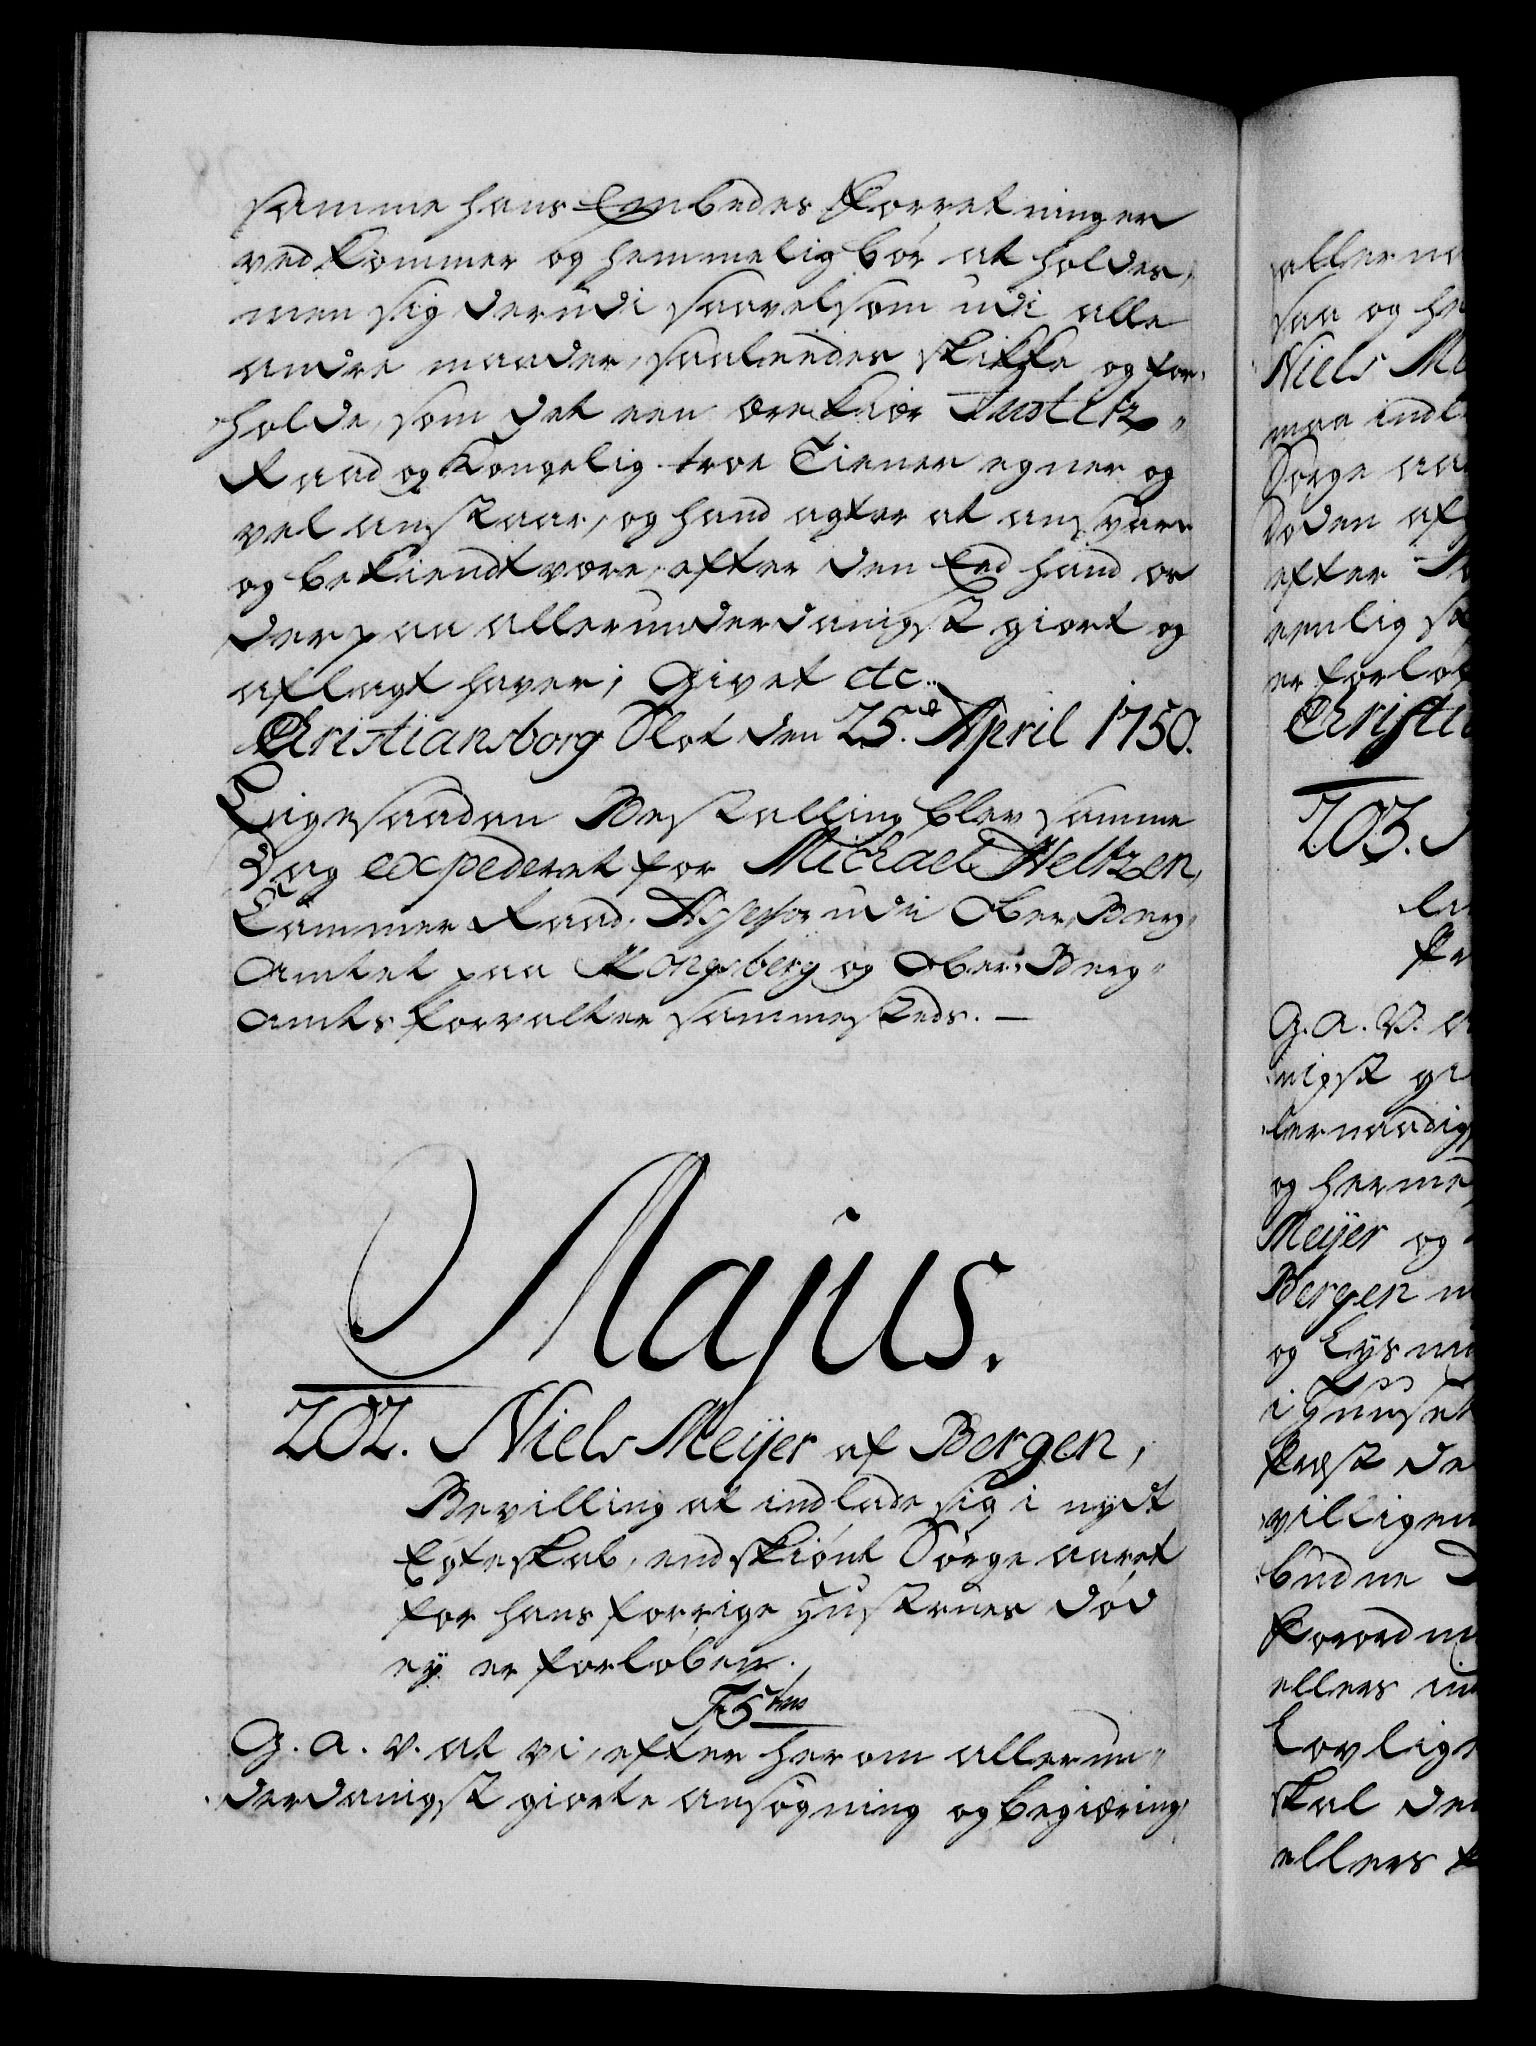 samme hans Embedes Forretninger
vedkommer og hemmelig bør at holdes,
men sig derudi saavelsom udi alle
andre maader, saaledes skikke og for-
holde, som det een ærekiær Justitz-
Raad og Kongelig troe Tiener egner og
vel anstaar, og hand agter at ansvare
og bekiendt være, efter den Eed hand os
derpaa allerunderdanigst giort og
aflagt haver; Givet etc..
Christiansborg Slot den 25.de April 1750.
Ligesaadan Bestalling blev samme
Dag expederet for Michael Heltzen,
Cammer Raad, Assessor udi Ober Berg-
Amtet paa Kongsberg og Ober-Berg-
Amts forvalter sammesteds. —
Majus.
202. Niels Meÿer af Bergen,
Bevilling at indlade sig i nydt
Egteskab, endskiønt Sørge aaret
for hans forrige Hustrues Død
eÿ er forløben.
F5tus
G. A. V. at vi, efter herom allerun-
derdanigst giorte ansøgning og begiæring,
allerna
saa og he
Niels Me
maa indl
Sørge aa
Døden af
efter
eenlig st
er forløb
Christi
203.
G. A. V. a
nigst gi
lernaadig
og herme
Meÿer og
Bergen m
og Lys
i Huuset
Præst de
villigen
budne
Forordn
ellers
Lovlige
skal de
ellers